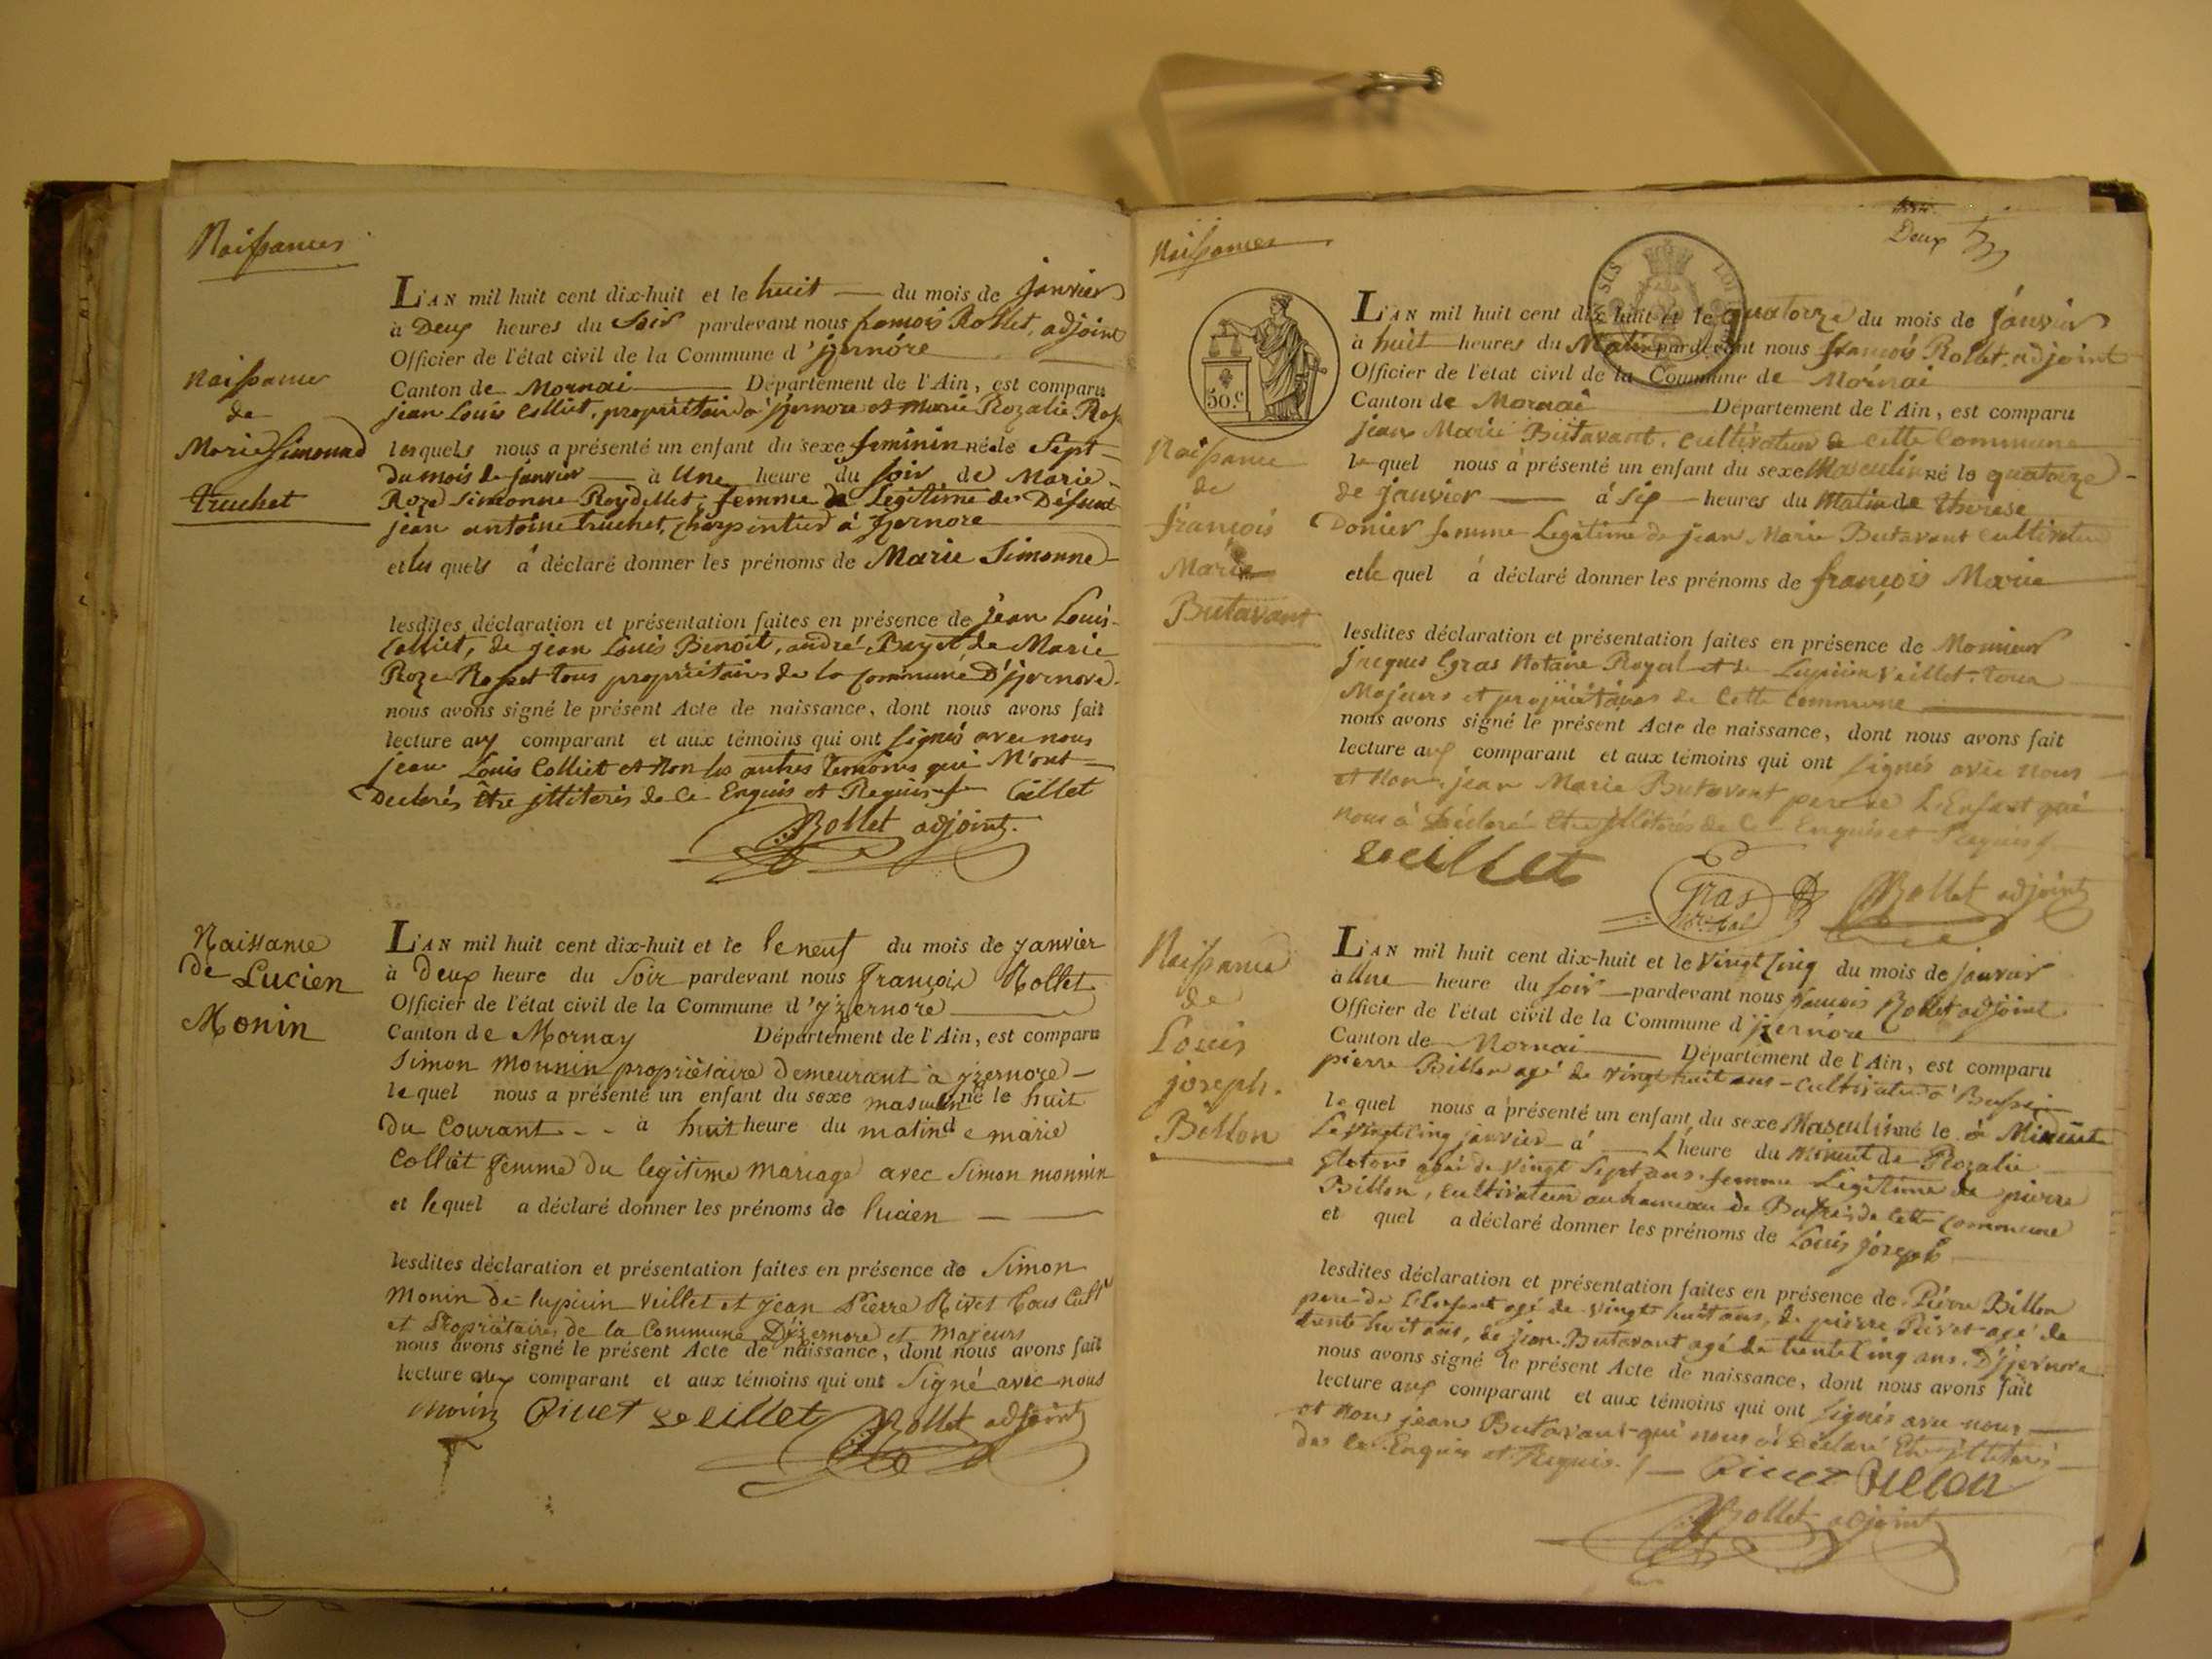 Naissances
Naissance
de
Marie Simonne
truchet
L'AN mil huit cent dix-huit et le huit du mois de janvier
à Deux heures du Soir pardevant nous françois Rollet, adjoint
Officier de l'état civil de la Commune d'yzernore
Canton de Mornai Département de l'Ain, est comparu
jean Louis Colliet, propriétaire à yzernore et Marie Rozalie
lesquels nous a présenté un enfant du sexe feminin né le Sept
du mois de janvier à Une heure du soir de Marie
Roze Simonne Reydellet, femme Legitime de Défunt
jean antoine truchet, charpentier à yzernore
et les quels à déclaré donner les prénoms de Marie Simonne
lesdites déclaration et présentation faites en présence de jean Louis
Colliet, de jean Louis Benoit, andré Bayet, de Marie
Roze Rosset tous propriétaires de la commune D'yzernore
nous avons signé le présent Acte de naissance, dont nous avons fait
lecture aux comparant et aux témoins qui ont signés avec nous
jean Louis Colliet et Non les autres Temoins qui N'ont
Declarés être illiterés de Ce Enquis et Requis Collet
Rollet adjoint
Naissance
de Lucien
Monin
L'AN mil huit cent dix-huit et le le neuf du mois de janvier
à deux heure du Soir pardevant nous françois Rollet
Officier de l'état civil de la Commune d'yzernore
Canton de Mornay Département de l'Ain, est comparu
Simon Monnin propriétaire demeurant à yzernore
lequel nous a présenté un enfant du sexe masculin né le huit
du Courant à huit heure du matin de marie
Colliet femme du legitime mariage avec Simon monnin
et lequel a déclaré donner les prénoms de lucien
lesdites déclaration et présentation faites en présence de Simon
Monin de lupicin veillet et jean Pierre Rivet tous Cult.
et Propriétaires de la Commune D'izernore et Majeurs
nous avons signé le présent Acte de naissance, dont nous avons fait
lecture aux comparant et aux témoins qui ont Signé avec nous
Monin Rivet veillet Rollet adjoint
Deux
Naissances
50.c
Naissance
de
françois
Marie
Butavant
L'AN mil huit cent dix-huit et le quatorze du mois de janvier
à huit heures du Matin pardevant nous françois Rollet adjoint
Officier de l'état civil de la Commune de Mornai
Canton de Mornai Département de l'Ain, est comparu
jean Marie Butavant, cultivateur de cette Commune
lequel nous à présenté un enfant du sexe Masculin né le quatorze
de janvier à six heures du Matin de therese
Donier femme Legitime de jean Marie Butavant cultivateur
et le quel à déclaré donner les prénoms de françois Marie
lesdites déclaration et présentation faites en présence de Monsieur
jacques Gras Notaire Royal et de Lupicin Veillet, tous
Majeurs et propriétaires de cette commune
nous avons signé le présent Acte de naissance, dont nous avons fait
lecture aux comparant et aux témoins qui ont signés avec nous
et Non jean Marie Butavant pere de L'Enfant qui
nous à Déclaré Etre illiterés de Ce Enquis et Requis
veillet
Gras Rollet adjoint
Naissance
de
Louis
joseph
Billon
L'AN mil huit cent dix-huit et le vingt Cinq du mois de janvier
à Une heure du soir pardevant nous françois Rollet adjoint
Officier de l'état civil de la Commune d'yzernore
Canton de Mornai Département de l'Ain, est comparu
pierre Billon agé de vingt huit ans Cultivateur à
lequel nous a présenté un enfant du sexe Masculin né le à Minuit
Le vingt Cinq janvier à L'heure du Minuit de Rozalie
agée de vingt Sept ans femme Légitime de pierre
Billon, cultivateur au hameau de de cette commune
et quel a déclaré donner les prénoms de Louis joseph
lesdites déclaration et présentation faites en présence de Pierre Billon
pere de L'Enfant agé de vingt huit ans, de pierre Rivet agé de
trente huit ans, de jean Butavant agé de trente Cinq ans D'yzernore
nous avons signé le présent Acte de naissance, dont nous avons fait
lecture aux comparant et aux témoins qui ont signés avec nous
et Nons jean Butavant qui nous à Déclaré Etre illiterés
des ce Enquis et Requis Rivet Billon
Rollet adjoint